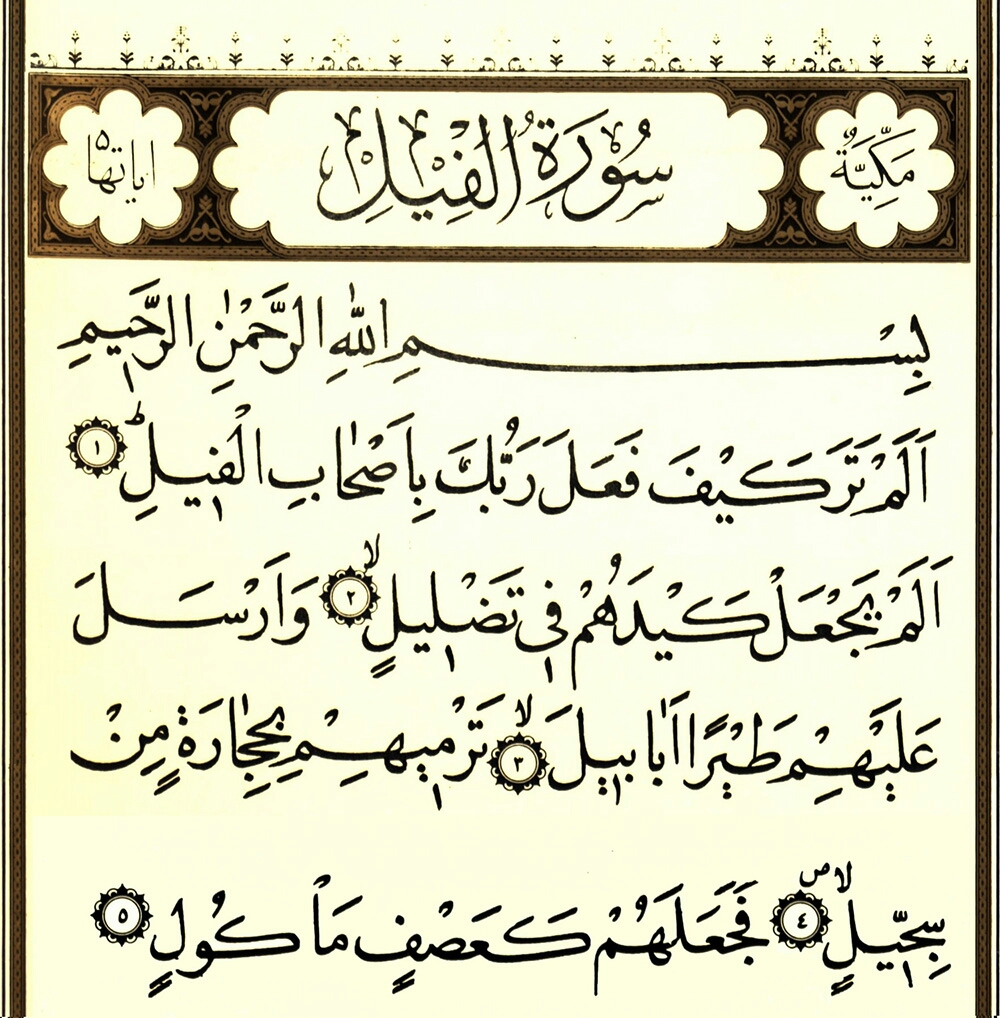 مَكِّيَّةٌ سُورَةُ الْفِيلِ اياتها ٥
بِسْمِ اللّٰهِ الرَّحْمٰنِ الرَّحِيمِ
اَلَمْ تَرَ كَيْفَ فَعَلَ رَبُّكَ بِاَصْحَابِ الْفِيلِۜ ١
اَلَمْ يَجْعَلْ كَيْدَهُمْ فِي تَضْلِيلٍۙ ٢ وَاَرْسَلَ
عَلَيْهِمْ طَيْرًا اَبَابِيلَۙ ٣ تَرْمِيهِمْ بِحِجَارَةٍ مِنْ
سِجِّيلٍۙۖ ٤ فَجَعَلَهُمْ كَعَصْفٍ مَأْكُولٍ ٥